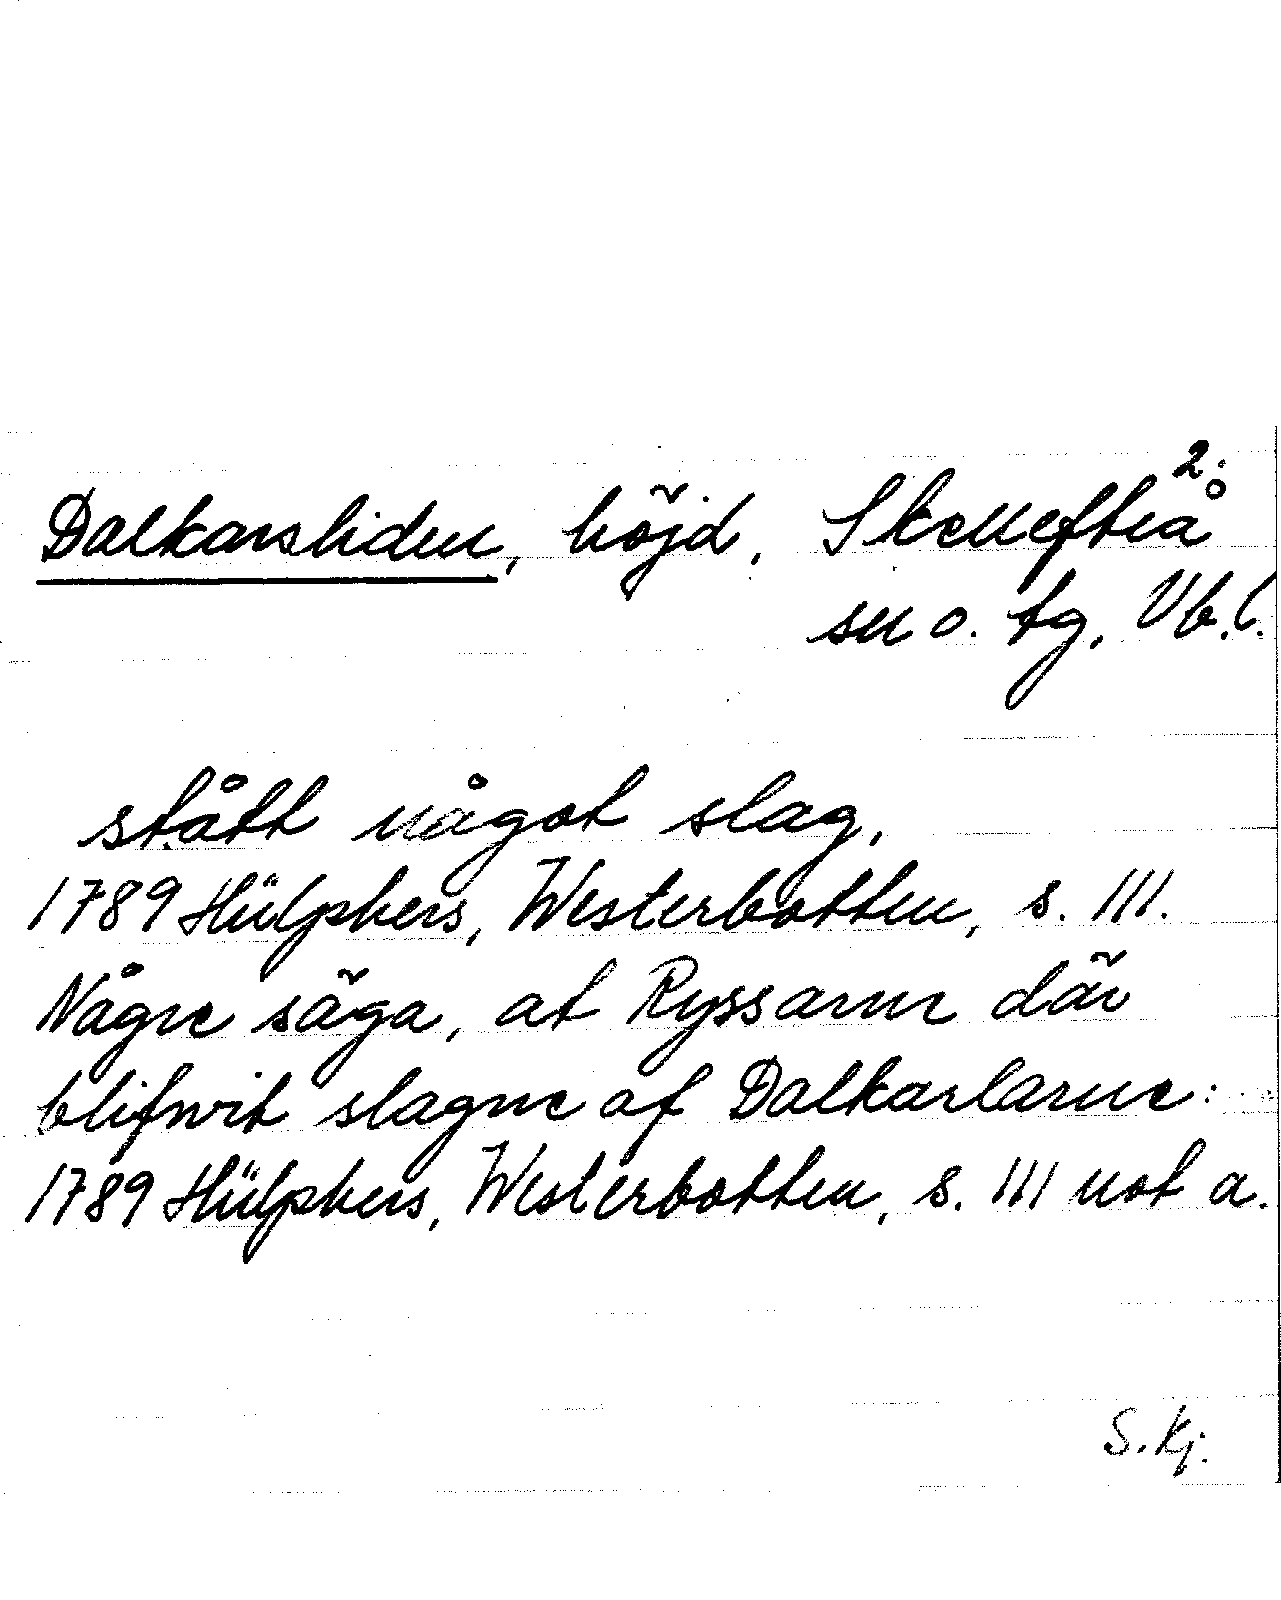 2.
Dalkarsliden, höjd, Skellefteå
sn o. tg, Vb.l.
stått något slag.
1789 Hülphers, Westerbotten, s. 111.
Någre säga, at Ryssarne där
blifwit slagne af Dalkarlarne:
1789 Hülphers, Westerbotten, s. 111 not a.
S. Kj.